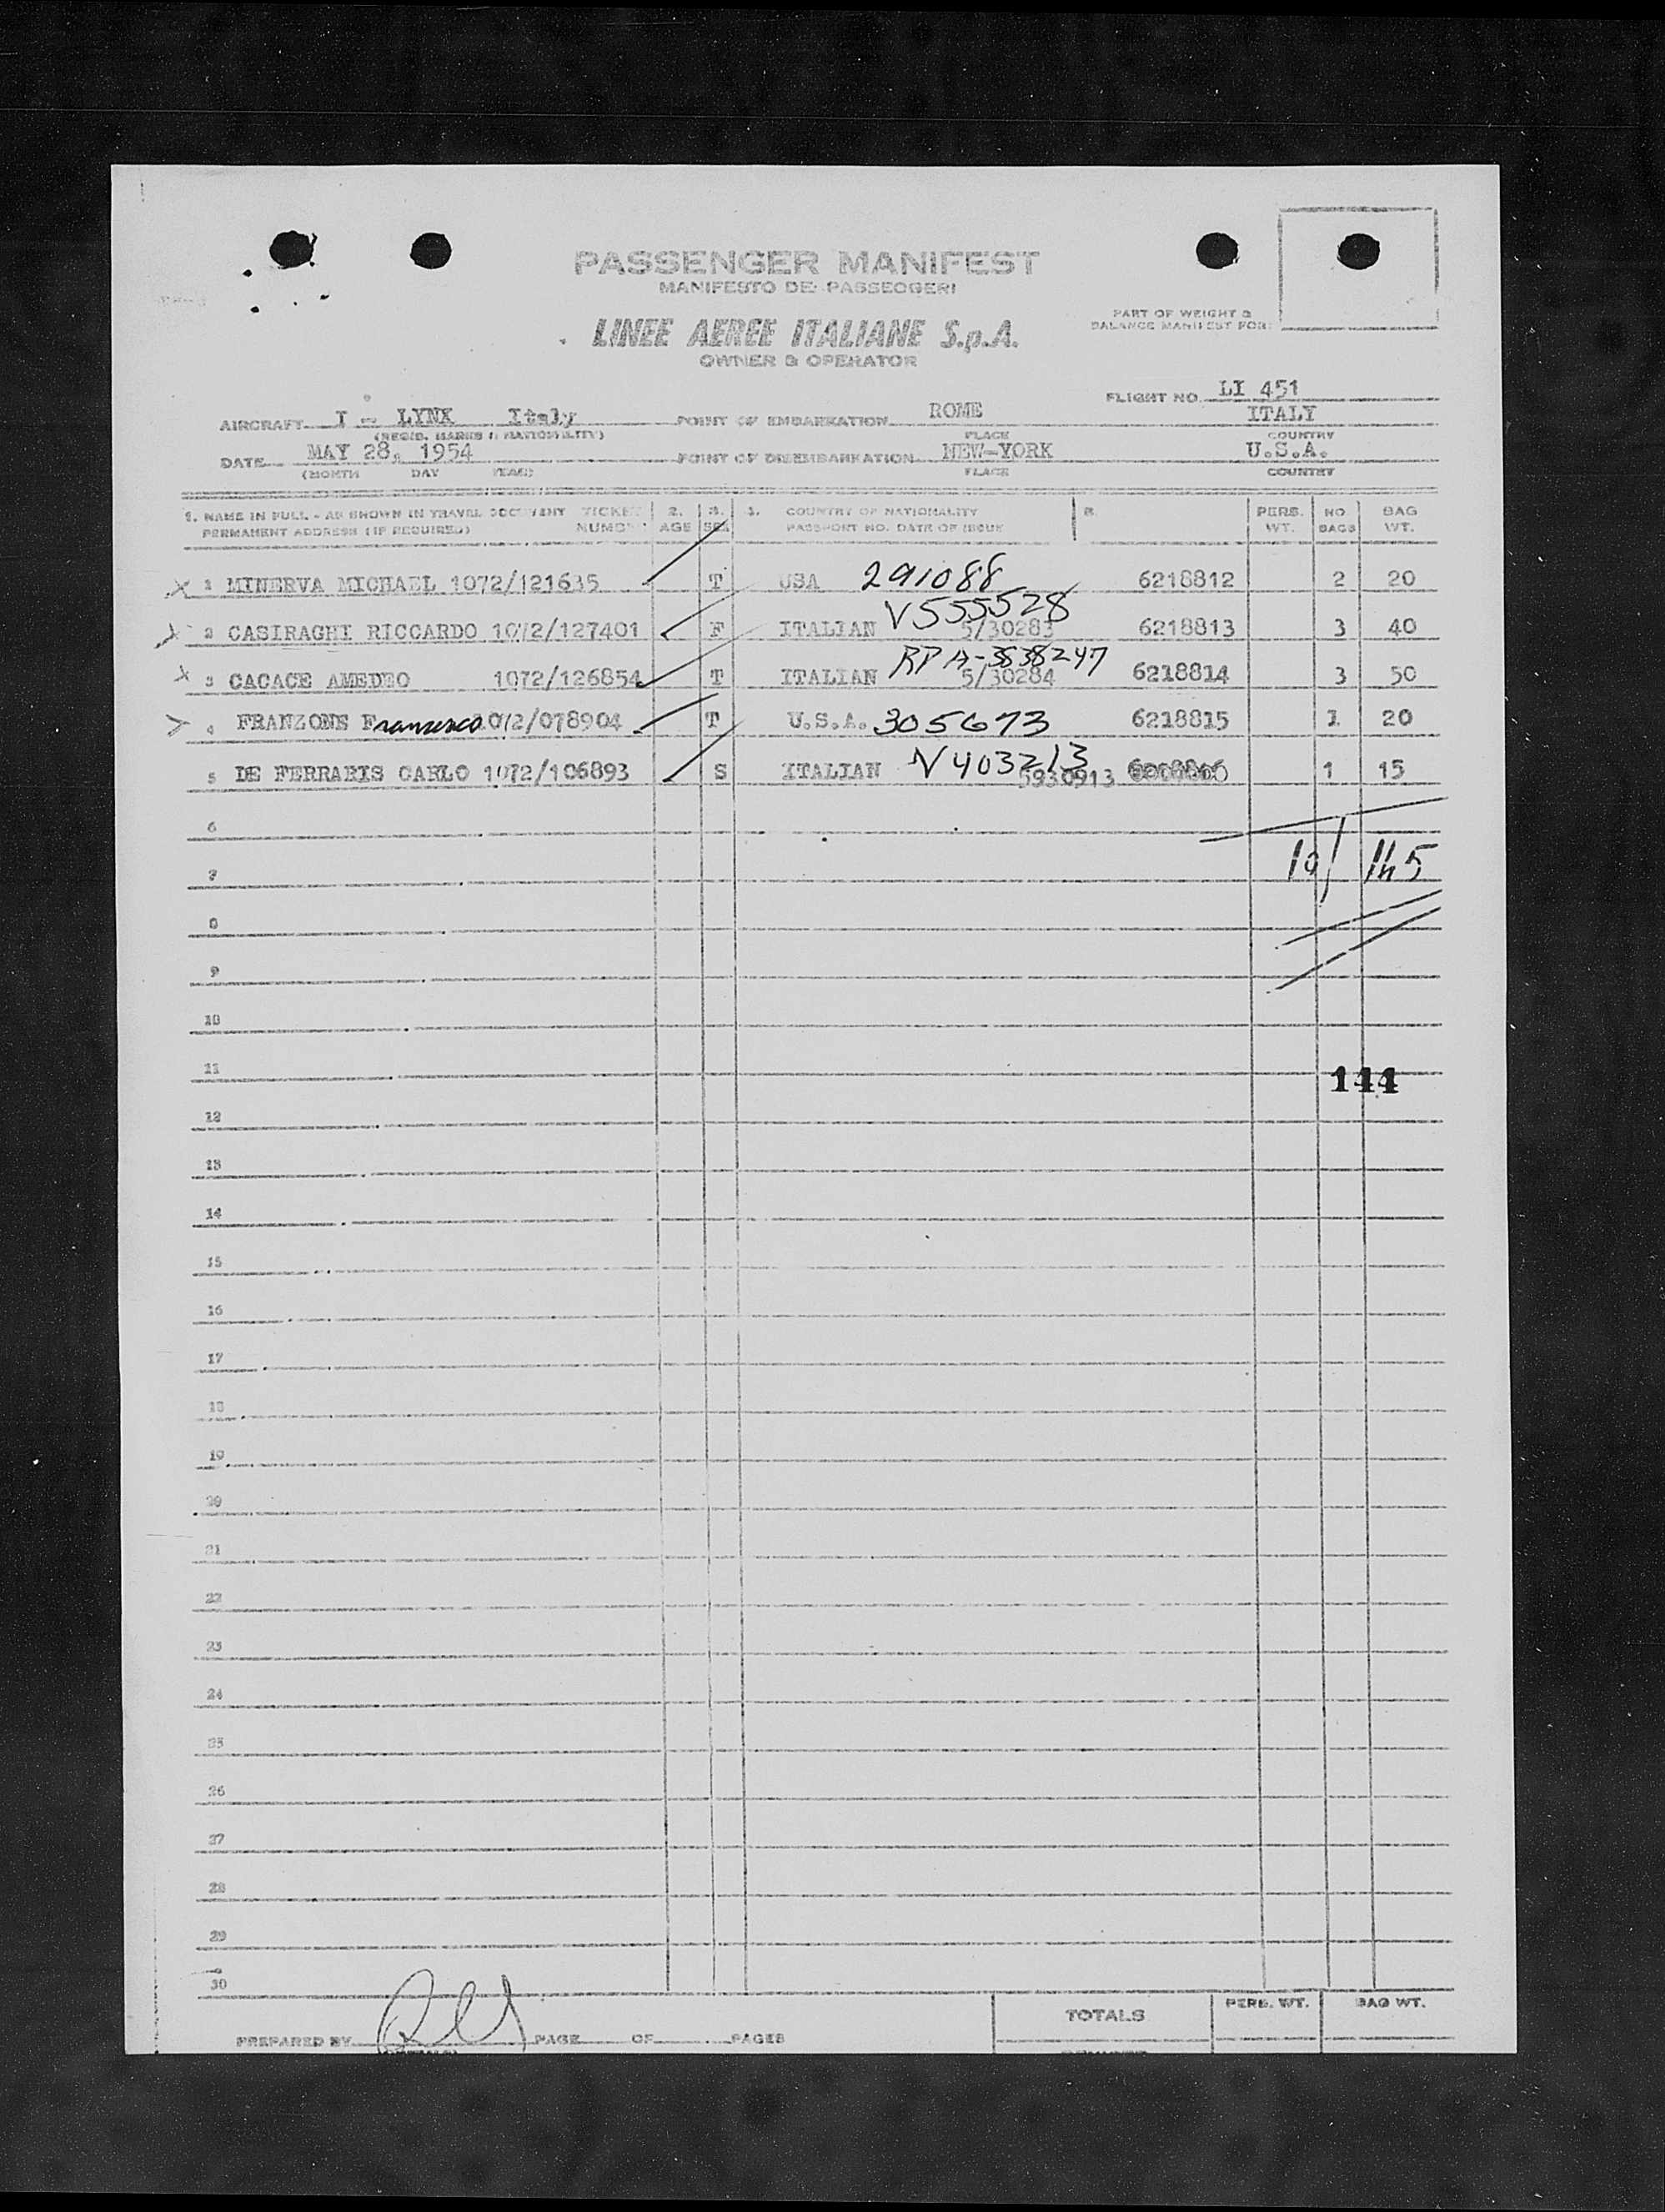 PASSENGER MANIFEST
MANIFESTO DEI PASSEGGERI
LINEE AEREE ITALIANE S.p.A.
OWNER & OPERATOR
PART OF WEIGHT &
BALANCE MANIFEST FOR:
FLIGHT NO. LI 451
AIRCRAFT I - LYNX Italy POINT OF EMBARKATION ROME ITALY
(REGIS. MARKS & NATIONALITY) PLACE COUNTRY
DATE MAY 28, 1954 POINT OF DISEMBARKATION NEW-YORK U.S.A.
(MONTH DAY YEAR) PLACE COUNTRY
1. NAME IN FULL - AS SHOWN IN TRAVEL DOCUMENT TICKET 2. 3. 4. COUNTRY OF NATIONALITY PERS. NO BAG
PERMANENT ADDRESS (IF REQUIRED) NUMBER AGE SEX PASSPORT NO. DATE OF ISSUE WT. BAGS WT.
1 MINERVA MICHAEL 1072/121635 T USA 291088 6218812 2 20
V555528
2 CASIRAGHI RICCARDO 1072/127401 F ITALIAN 5/30283 6218813 3 40
RPA-3638247
3 CACACE AMEDEO 1072/126854 T ITALIAN 5/30284 6218814 3 50
4 FRANZONE Francesco 1072/078904 T U.S.A. 305673 6218815 1 20
5 DE FERRARIS CARLO 1072/106893 S ITALIAN V403213 5930913 1 15
6
10/ 145
7
8
9
10
11
144
12
13
14
15
16
17
18
19
20
21
22
23
24
25
26
27
28
29
30
TOTALS PERS. WT. BAG WT.
PREPARED BY PAGE OF PAGES